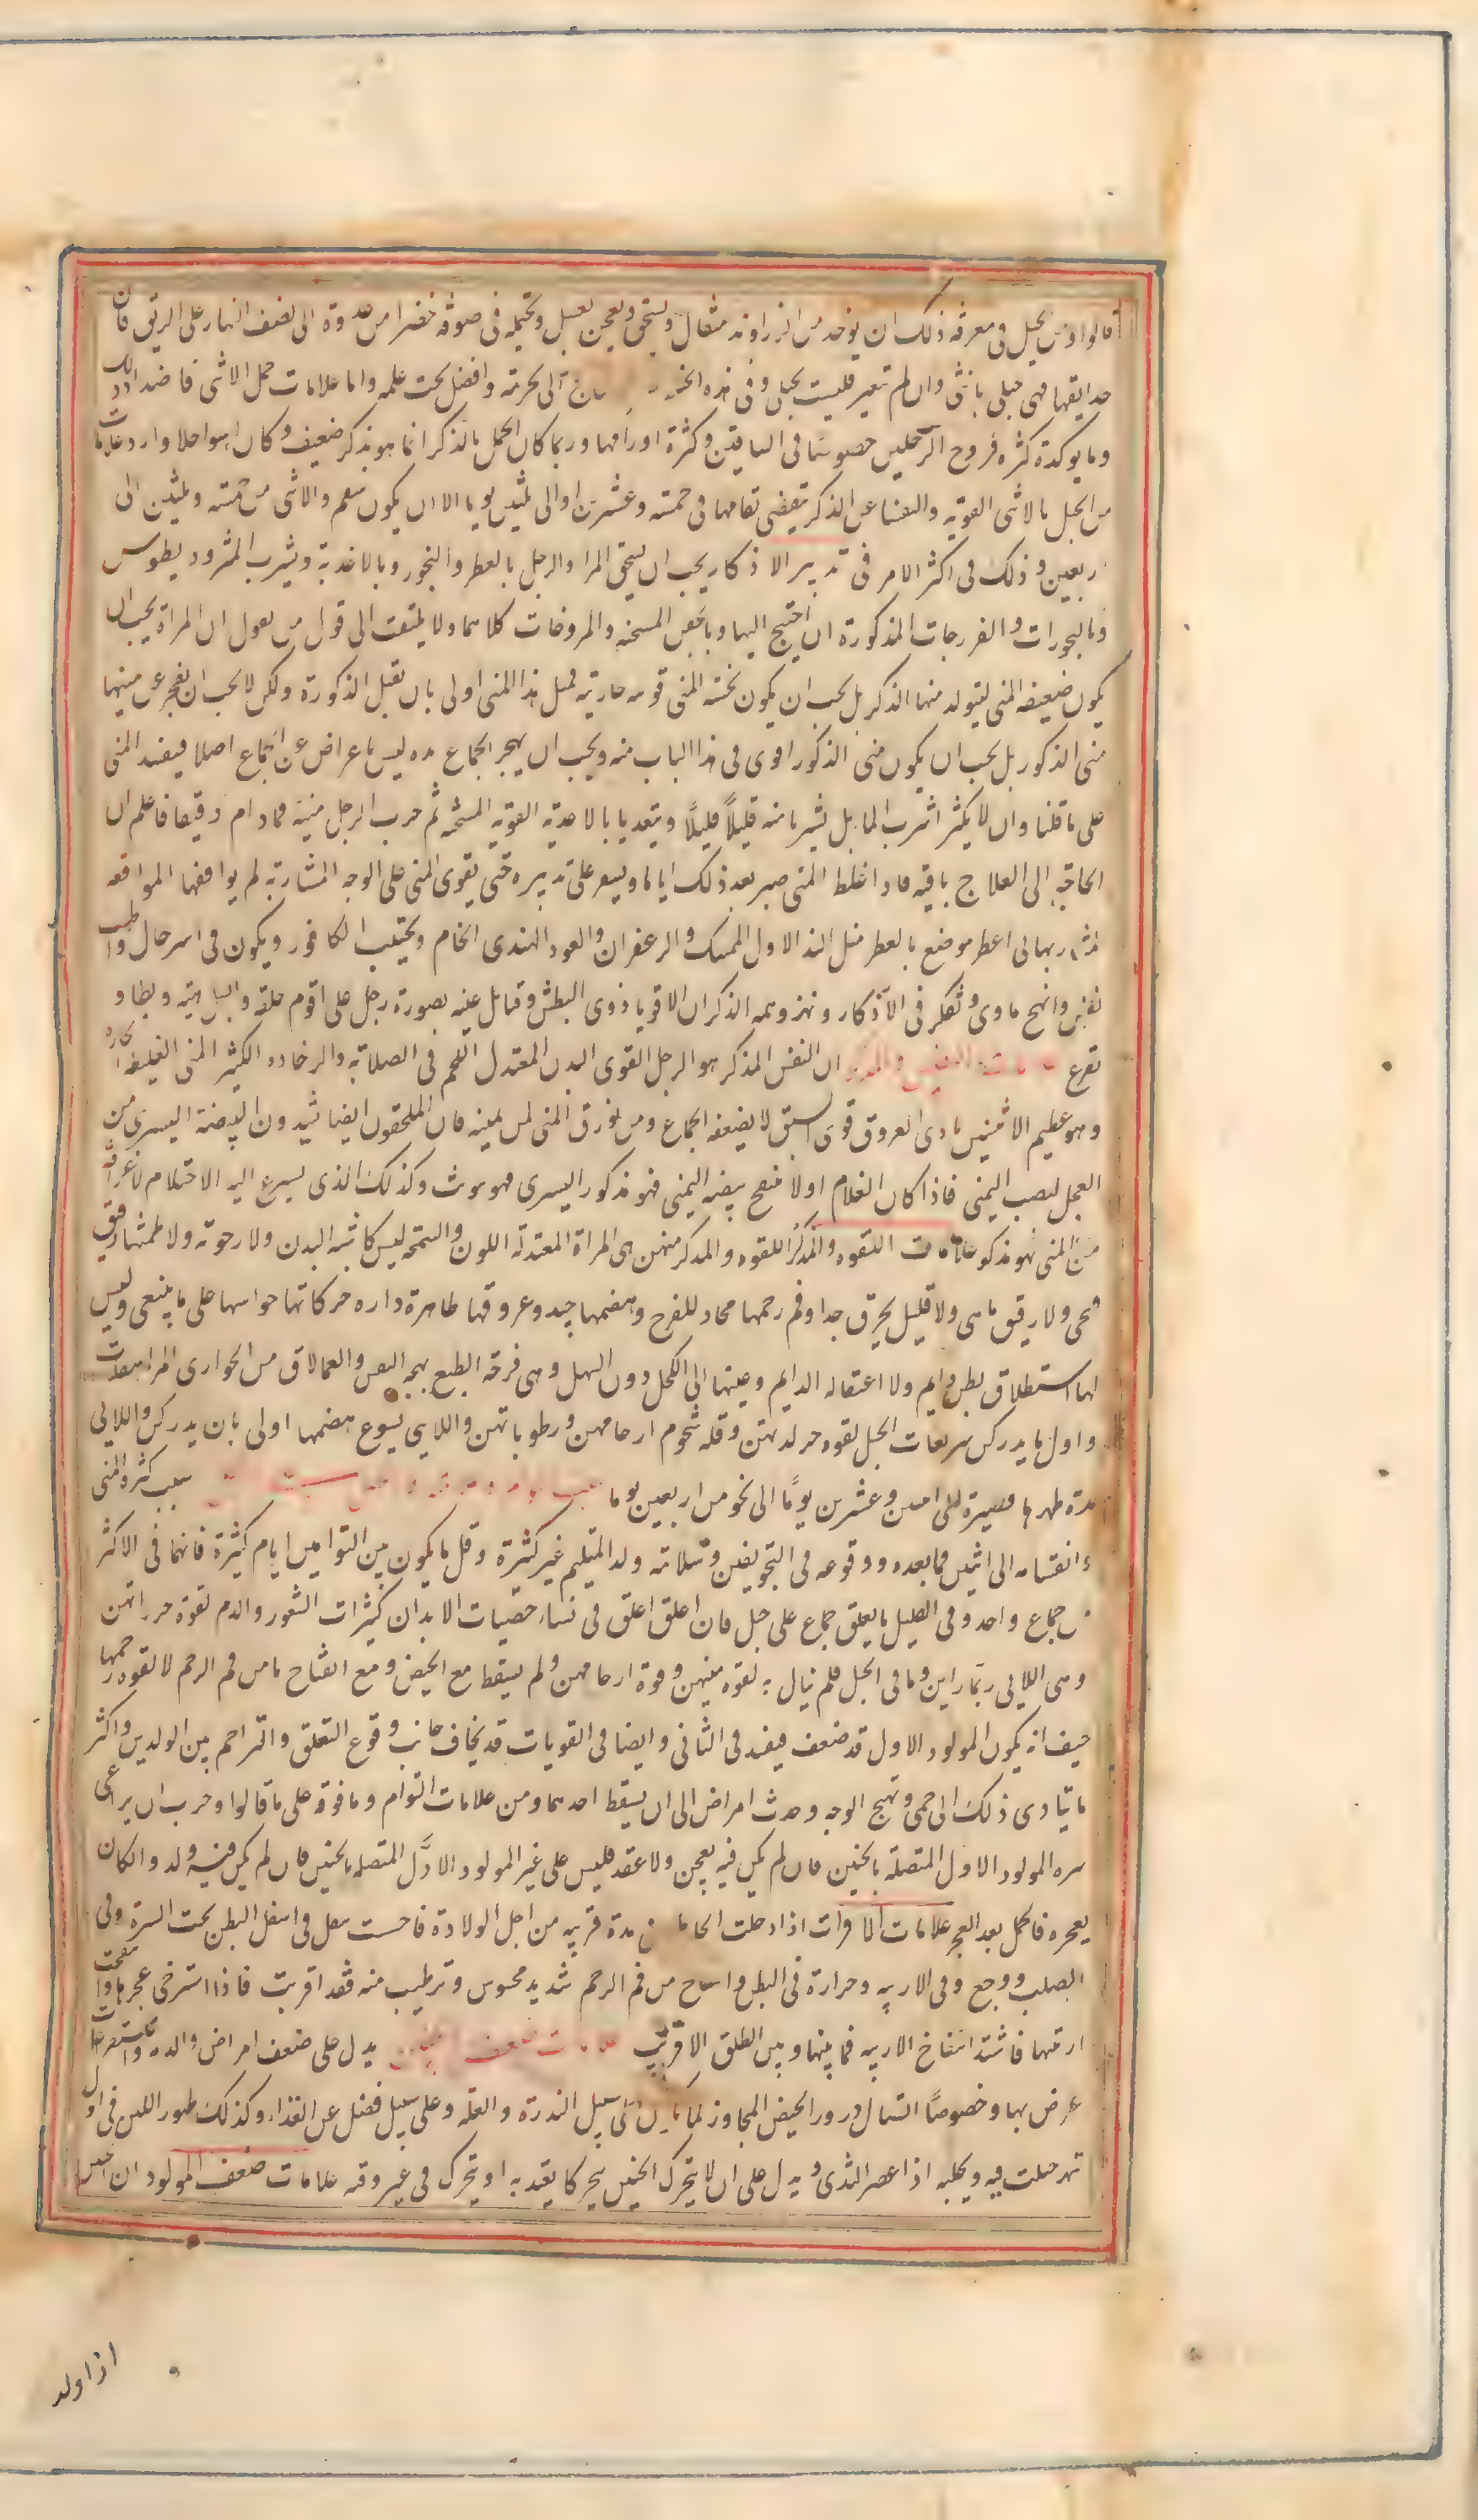 قالوا ومن الحيل فى معرفة ذلك ان يوخذ من الزراوند مثقال ويسحق ويعجن بعسل وتحتمله فى صوفة خضرا من غدوة الى نصف النهار على الريق فان
حلا ريقها فهى حبلى بانثى وان لم تتغير فليست بحبلى وفى هذه الحيلة الى تجربة وافضل بحث علمه واما علامات حمل الانثى فاضداد ذلك
وما يوكده كثرة قروح الرجلين خصوصا فى الساقين وكثرة اورامها وربما كان الحمل بالذكر انما هو بذكر ضعيف وكان اسوا حالا واردء علامات
من الحبل بالانثى القوية والنفسا عن الذكر تنقضى نقاها فى خمسة وعشرين او الى ثلثين يوما الا ان يكون سقم والانثى من خمسة وثلثين الى
اربعين وذلك فى اكثر الامر فى تدبير الاذكار يجب ان يسخن المراة والرجل بالعطر والبخور وبالاغذية ويشرب المثروديطوس
وبالبخورات والفرزجات المذكورة ان احتيج اليها وبالحقن المسخنة والمروخات كلاهما ولا يلتفت الى قول من يقول ان المراة يجب ان
يكون ضعيفة المنى ليتولد منها الذكر بل يجب ان يكون ثخينة المنى قوية حارته فمثل هذا المنى اولى بان تقبل الذكورة ولكن لا يجب ان يعجز عن منيها
منى الذكور بل يجب ان يكون منى الذكور اقوى فى هذا الباب منه ويجب ان يهجر الجماع مدة ليس باعراض عن الجماع اصلا فيفسد المنى
على ما قلنا وان لا يكثر شرب الما بل يشربا منه قليلًا قليلًا ويتغديا بالاغذية القوية المسخنة ثم جرب الرجل منيه فما دام رقيقا فاعلم ان
الحاجة الى العلاج باقية فاذا غلظ المنى صبر بعد ذلك اياما ويسعر على تدبيره حتى يقوى المنى على الوجه المشار به لم يواقعها المواقعة
المشار بها الى اعطر موضع بالعطر مثل الند الاول المسك والزعفران والعود الهندى الخام ويجتنب الكافور ويكون فى اسر حال واطيب
نفس وابهج ماوى وتفكر فى الاذكار وتهز وهمه الذكران الاقويا ذوى البطش وقابل عينه بصورة رجل على اقوم خلقه والباهية ويطاء و
تفرغ علامات النفس والمذكر ان النفس المذكر هو الرجل القوى البدن المعتدل اللحم فى الصلابة والرخاوة الكثير المنى الغليظ الحاره
وهو عظيم الانثيين بادى العروق قوى الشبق لا يضعفه الجماع ومن يزرق المنى من يمينه فان الملحقون ايضا يشدون البيضة اليسرى من
العجل ليصب اليمنى فاذا كان الغلام اولا منتفخ بيضه اليمنى فهو مذكور اليسرى فهو مونث وكذلك الذى يسرع اليه الاحتلام لا عن افة
من المنى فهو مذكور علامات اللقوة والمذكر اللقوه والمذكر منهن هى المراة المعتدلة اللون والسحنة ليس كاشبه البدن ولا رخوته ولا طمثها رقيق
قيحى ولا رقيق مائى ولا قليل يحرق جدا وفم رحمها محاد للفرج وهضمها جيد وعروقها ظاهرة داره حركاتها حواسها على ما ينبغى وليس
بها استطلاق بطن دايم ولا اعتقاله الدايم وعينها الى الكحل دون الشهل وهى فرحة الطبع بهجة النفس والعمالاق من الجوارى المراهقات
واول ما يدركن سريعات الحبل لقوه حرارتهن وقله شحوم ارحامهن ورطوباتهن واللايى يسوع هضمها اولى بان يدركن واللايى
مدة طهرها قصيرة الى اثنين وعشرين يومًا الى نحو من اربعين يوما سبب كثرة المنى
وانقسامه الى اثنين فما بعده ووقوعه فى التجويفين وسلامة ولد المتيم غير كثيرة وقل ما يكون بين التوامين ايام كثيرة فانهما فى الاكثر
من جماع واحد وفى القليل ما يعلق جماع على حبل فان اعلق اعلق فى نساء خصيات الابدان كثيرات الشعور والدم لقوة حرراتهن
وهى اللايى ربما راين دما فى الحبل فلم نيال به لقوه منيهن وقوة ارحامهن ولم يسقط مع الحيض ومع انفتاح ما من فم الرحم لا لقوه رحمها
حيف انه يكون المولود الاول قد ضعف فيفسد فى الثانى وايضا فى القويات قد يخاف جانب وقوع التعلق والتراحم بين الولدين واكثر
ما يتادى ذلك الى حمى وتهيج الوجه وحدث امراض الى ان يسقط احدهما ومن علامات التوام وما فوقه على ما قالوا وجرب ان يراعى
سره المولود الاول المتصلة بالجنين فان لم يكن فيه تعجن ولا عقد فليس على غير المولود الاوّل المتصله بالجنين فان لم يكن فيه ولد والكان
يعجره فالحمل بعد العجر علامات الاقراب اذا دخلت الحامل فى مدة قريبه من اجل الولادة فاحست بثقل فى اسفل البطن تحت السرة وفى
الصلب ووجع وفى الاربيه وحرارة فى البطن وانتفاخ من فم الرحم شديد محسوس وترطيب منه فقد اقربت فاذا استرخى عجزها وانفتحت
اربيتها فاشتد انتفاخ الاربيه فما بينها وبين الطلق الا قريب علامات ضعف الجنين يدل على ضعف امراض والدته واستفراغات
عرض بها وخصوصًا اتصال درور الحيض المجاوز لما يكون على سبيل الندرة والقلة وعلى سبيل فضل عن الغذاء وكذلك ظهور اللبن فى اول
شهر حبلت فيه ويحلبه اذا عصر الثدى ويدل على ان لا يتحرك الجنين تحركا يعتد به او يتحرك فى غير وقته علامات ضعف المولود ان الجنين
اذا ولد